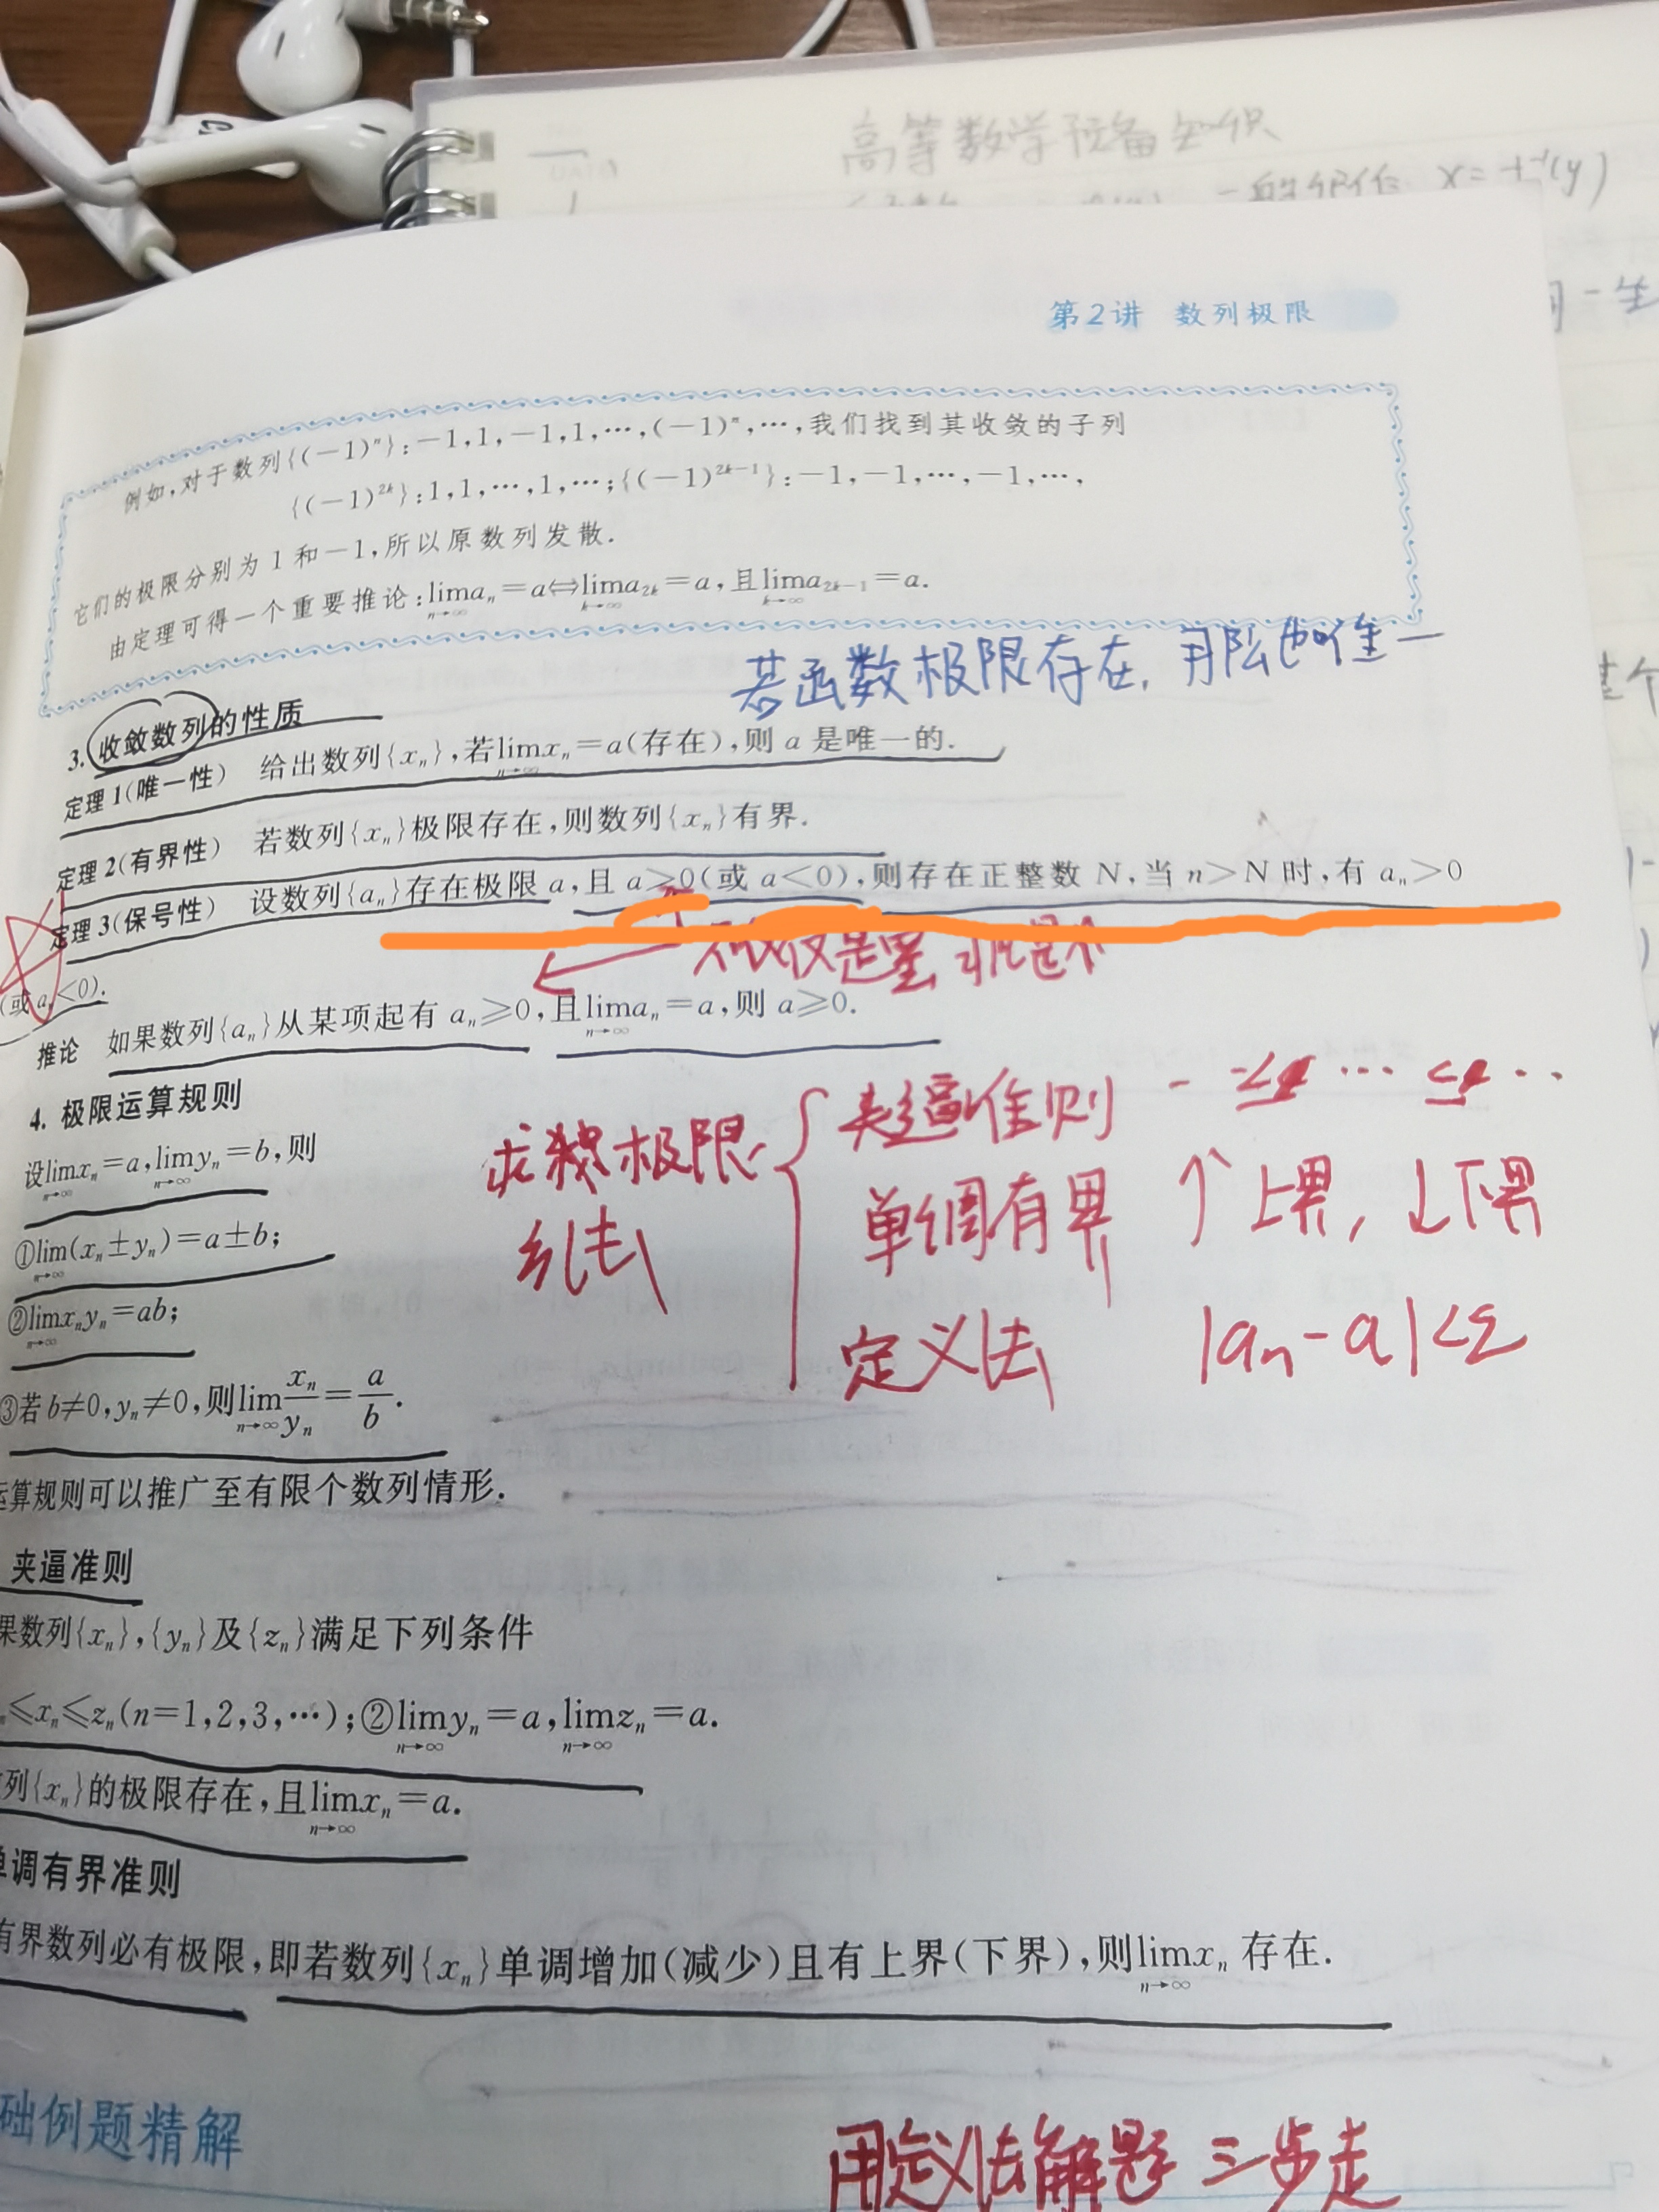 高等数学预备知识
x = f⁻¹(y)
第2讲 数列极限
例如,对于数列{(-1)ⁿ}:-1,1,-1,1,…,(-1)ⁿ,…,我们找到其收敛的子列
{(-1)²ᵏ}:1,1,…,1,…;{(-1)²ᵏ⁻¹}:-1,-1,…,-1,…,
它们的极限分别为1和-1,所以原数列发散.
由定理可得一个重要推论:lim(n→∞)aₙ=a⇔lim(k→∞)a₂ₖ=a,且lim(k→∞)a₂ₖ₋₁=a.
若函数极限存在,那么也唯一
3. 收敛数列的性质
定理1(唯一性) 给出数列{xₙ},若lim(n→∞)xₙ=a(存在),则a是唯一的.
定理2(有界性) 若数列{xₙ}极限存在,则数列{xₙ}有界.
定理3(保号性) 设数列{aₙ}存在极限a,且a>0(或a<0),则存在正整数N,当n>N时,有aₙ>0
(或aₙ<0).
推论 如果数列{aₙ}从某项起有aₙ≥0,且lim(n→∞)aₙ=a,则a≥0.
4. 极限运算规则
设lim(n→∞)xₙ=a,lim(n→∞)yₙ=b,则
①lim(n→∞)(xₙ±yₙ)=a±b;
②lim(n→∞)xₙyₙ=ab;
③若b≠0,yₙ≠0,则lim(n→∞)xₙ/yₙ=a/b.
求 极限
夹逼准则 ≤ … ≤ …
单调有界 ↑上界,↓下界
定义法 |aₙ-a|<ε
运算规则可以推广至有限个数列情形.
夹逼准则
果数列{xₙ},{yₙ}及{zₙ}满足下列条件
≤xₙ≤zₙ(n=1,2,3,…);②lim(n→∞)yₙ=a,lim(n→∞)zₙ=a.
列{xₙ}的极限存在,且lim(n→∞)xₙ=a.
单调有界准则
有界数列必有极限,即若数列{xₙ}单调增加(减少)且有上界(下界),则lim(n→∞)xₙ存在.
础例题精解
用定义法解题 三步走